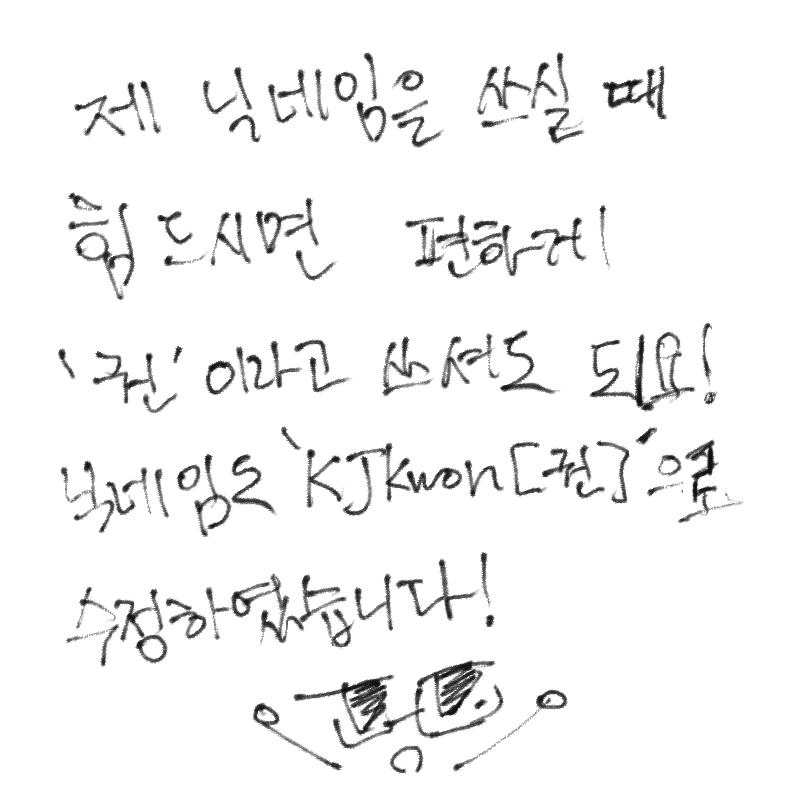 제 닉네임을 쓰실 때
힘드시면 편하게
'권'이라고 쓰셔도 되요!
닉네임도 'KJKwon[권]'으로
수정하였습니다!